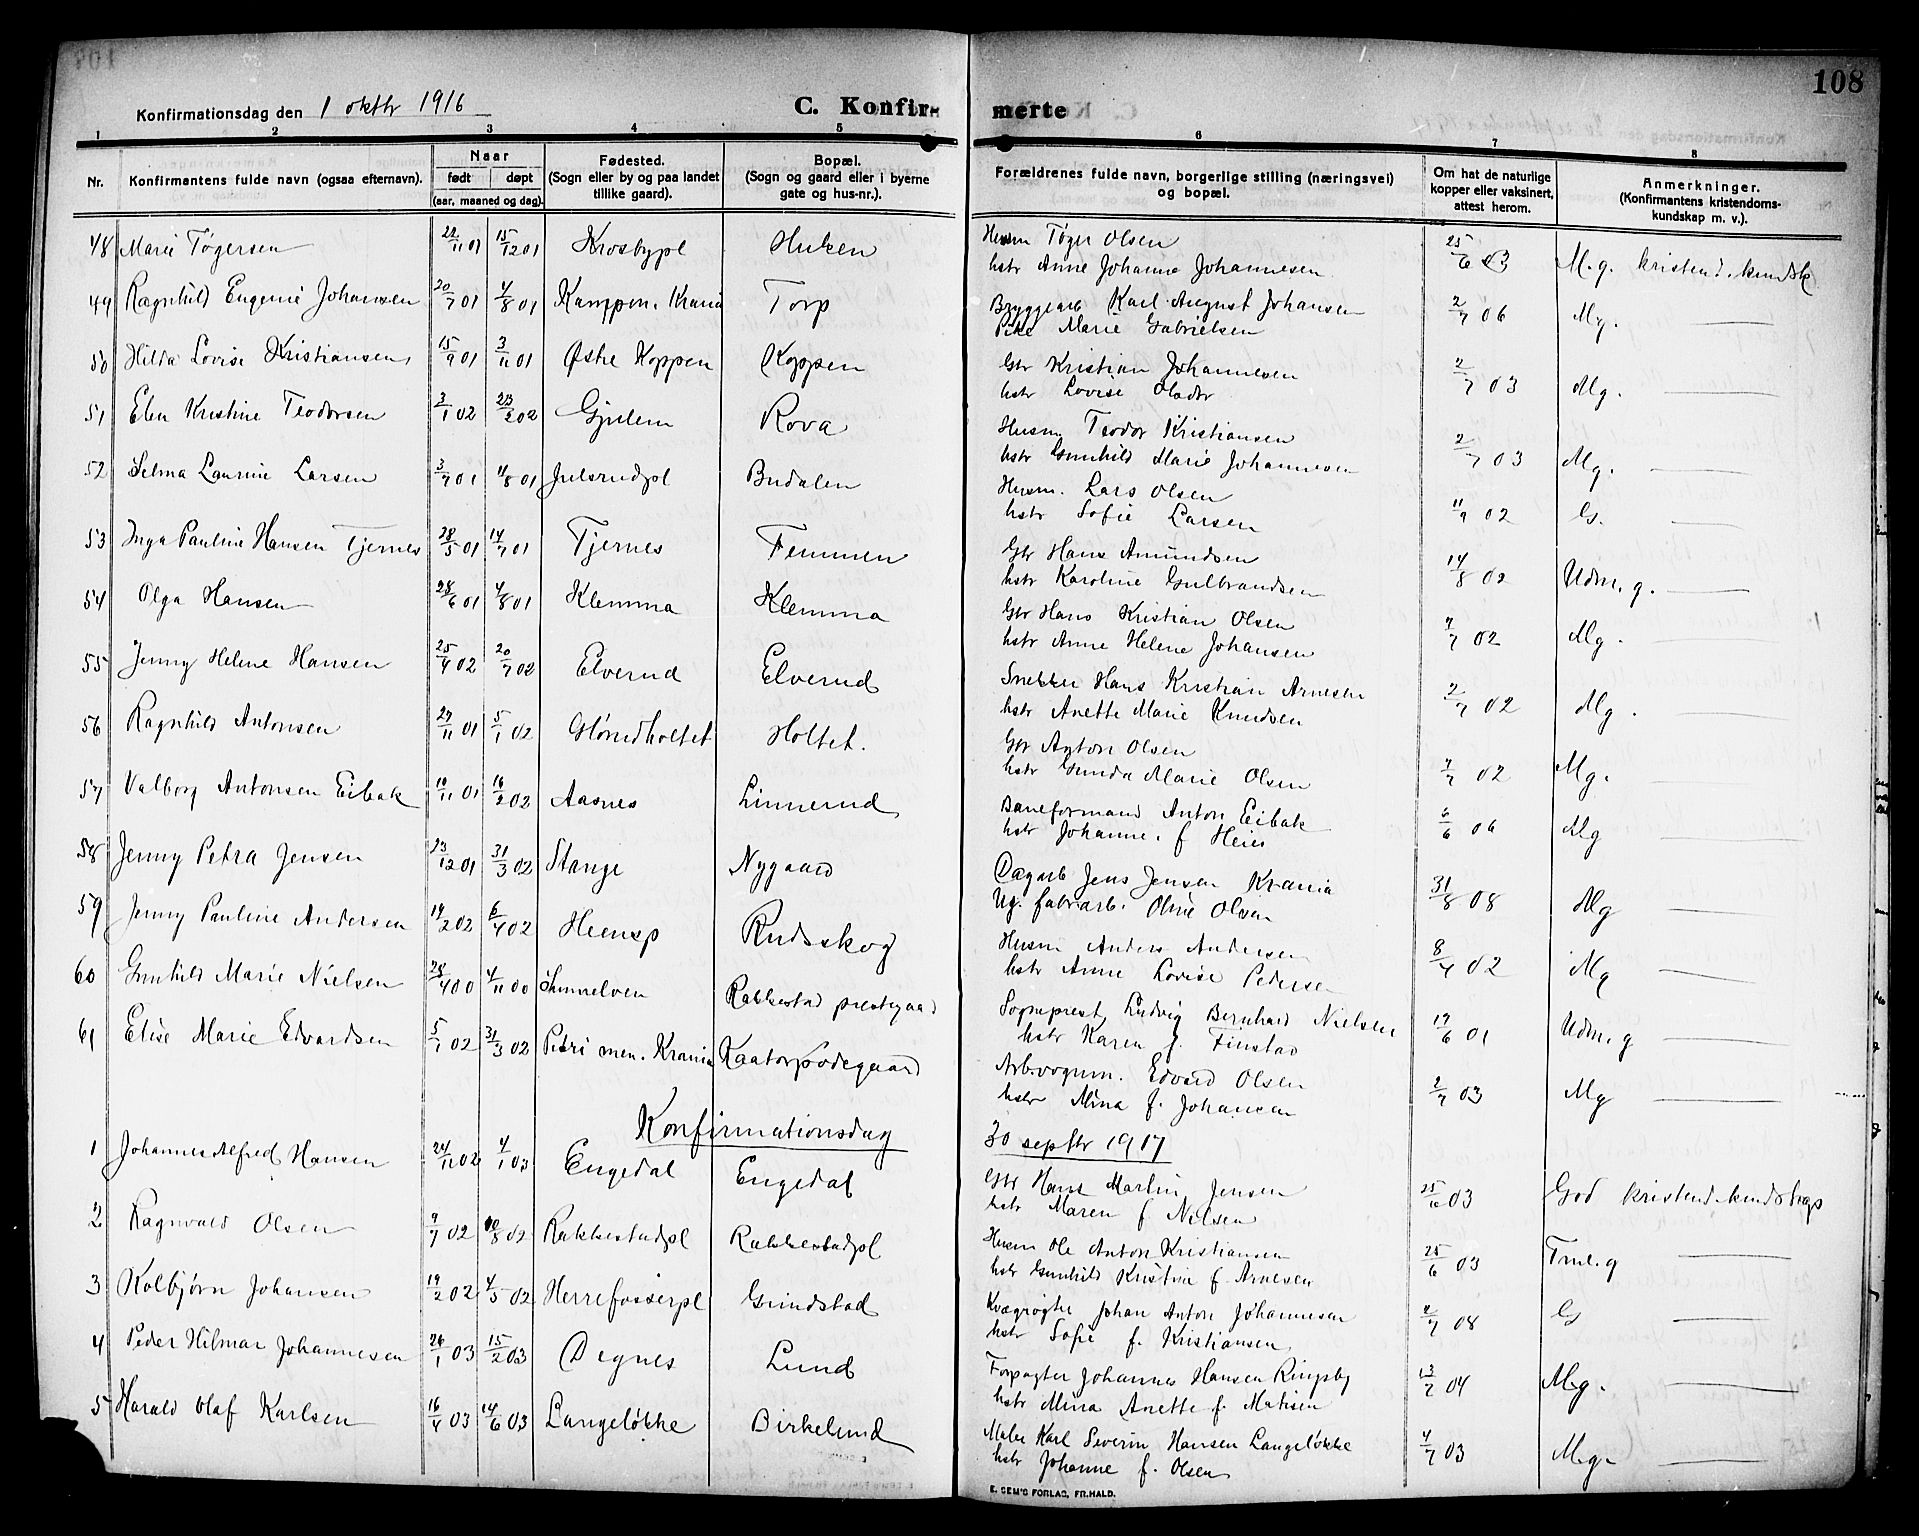 108
Konfirmationsdag den 1 oktbr 1916
C. Konfirmerte
1 2 3 4 5 6 7 8
Nr. Konfirmantens fulde navn (ogsaa efternavn). Naar født døpt (aar, maaned og dag). Fødested. (Sogn eller by og paa landet tillike gaard). Bopæl. (Sogn og gaard eller i byerne gate og hus-nr.). Forældrenes fulde navn, borgerlige stilling (næringsvei) og bopæl. Om hat de naturlige kopper eller vaksinert, attest herom. Anmerkninger. (Konfirmantens kristendomskundskap m. v.).
48 Marie Tøgersen 22/11 01 15/12 01 Krosbypl Huken Husm Tøger Olsen
hstr Anne Johanne Johannesen 25/6 03 M.g. kristend. kundsk
49 Ragnhild Eugenie Johansen 20/7 01 4/8 01 Kampen. Krania Torp Bryggearb Karl August Johansen
Pike Marie Gabrielsen 2/7 06 Mg. —
50 Hilda Lovise Kristiansen 15/9 01 3/11 01 Østre Koppen Koppen Gbr Kristian Johannesen
hstr Lovise Olsdtr 2/7 03 Mg. —
51 Elen Kristine Teodorsen 3/1 02 23/2 02 Gjulem Rova Husm. Teodor Kristiansen
hstr Gunhild Marie Johannesen 2/7 03 Mg. —
52 Selma Laurine Larsen 3/7 01 4/8 01 Julsrudpl Budalen Husm. Lars Olsen
hstr Sofie Larsen 11/9 02 G. —
53 Inga Pauline Hansen Tjernes 28/5 01 14/7 01 Tjernes Femmen Gbr Hans Amundsen
hstr Karoline Gulbrandsen 14/8 02 Udm. g. —
54 Olga Hansen 28/6 01 4/8 01 Klemma Klemma Gbr Hans Kristian Olsen
hstr Anne Helene Johansen 7/7 02 Mg. —
55 Jenny Helene Hansen 25/4 02 20/7 02 Elverud Elverud Snekker Hans Kristian Arnesen
hstr Anette Marie Knudsen 2/7 02 Mg. —
56 Ragnhild Antonsen 27/11 01 5/1 02 Glørudholtet Holtet. Gbr Anton Olsen
hstr Gunda Marie Olsen 7/7 02 Mg. —
57 Valborg Antonsen Eibak 10/11 01 16/2 02 Aasnes Linnerud Baneformand Anton Eibak
hstr Johanne. f Heier 6/6 06 Mg —
58 Jenny Petra Jensen 23/12 01 31/3 02 Stange Nygaard Dagarb Jens Jensen Krania
Ug. fabrarb. Oline Olsen 31/8 08 Mg —
59 Jenny Pauline Andersen 14/2 02 6/4 02 Heensp Rudsskog Husm Anders Andersen
hstr Anne Lovise Pederse 8/4 02 Mg —
60 Gunhild Marie Nielsen 28/4 00 4/11 00 Skimmelven Rakkestad prestegaa Sogneprest Ludvig Bernhard Nielsen
hstr Karen f. Finstad 19/6 01 Udm. g —
61 Elise Marie Edvardsen 5/1 02 31/3 02 Petri men. Krania Kaatorpødegaard Arb.vognm. Edvard Olsen
hstr Mina f. Johansen 2/7 03 Mg —
Konfirmationsdag 30 septbr 1917
1 Johannes Alfred Hansen 24/11 02 4/1 03 Engedal Engedal Gbr Hans Martin Jensen
hstr Maren f. Nilsen 25/6 03 God kristend. kundskap
2 Ragnvald Olsen 9/7 02 10/8 02 Rakkestadpl Rakkestadpl Husm Ole Anton Kristiansen
hstr Gunhild Kristine f. Arnesen 25/6 03 Tml. g —
3 Kolbjørn Johansen 19/2 02 4/5 02 Herrefosserpl Grindstad Kvægrøgter Johan Anton Johannesen
hstr Sofie f. Kristiansen 2/7 08 G —
4 Peder Hilmar Johannesen 26/1 03 15/2 03 Degnes Lund Forpagter Johannes Hansen Ringsby
hstr Mina Anette f. Matisen 13/7 04 M.g. —
5 Harald Olaf Karlsen 16/4 03 14/6 03 Langeløkke Birkelund Maler Karl Severin Hansen Langeløkke
hstr Johanne f. Olsen 4/7 03 M.g. —
E. SEM'S FORLAG, FR.HALD.